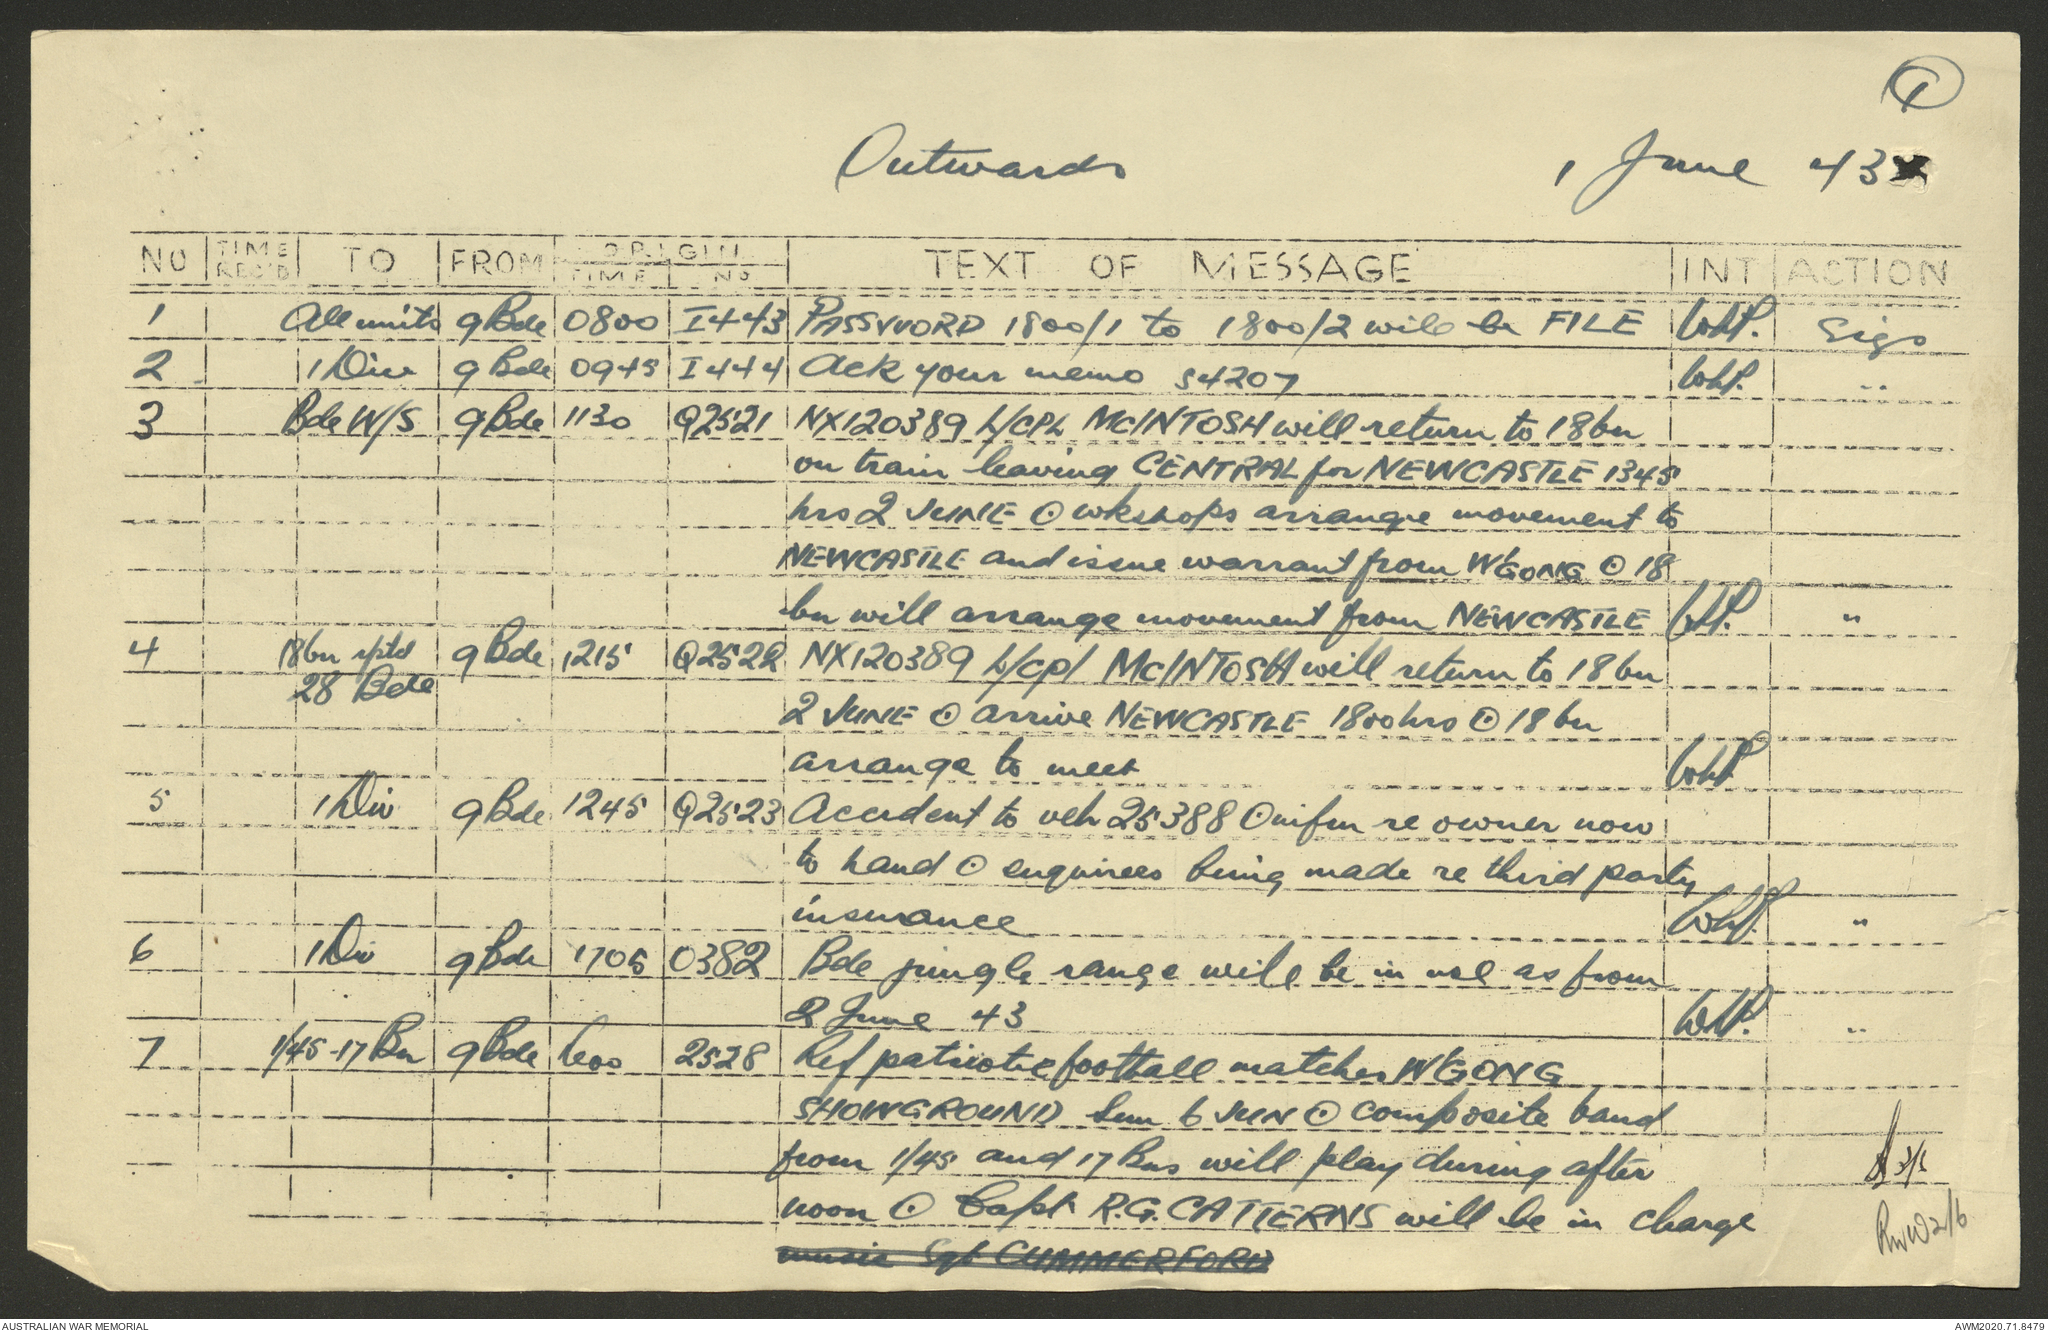 1
Outwards 1 June 43
NO TIME REC'D TO FROM ORIGIN TIME NO TEXT OF MESSAGE INT ACTION
1 All units 9 Bde 0800 I443 PASSWORD 1800/1 to 1800/2 will be FILE WhP. Sigs
2 1 Div 9 Bde 0945 I444 Ack your memo S4207 WhP. "
3 Bde W/S 9 Bde 1130 Q2521 NX120389 L/CPL McINTOSH will return to 18 bn
on train leaving CENTRAL for NEWCASTLE 1345
hrs 2 JUNE ⊙ wkshops arrange movement to
NEWCASTLE and issue warrant from W'GONG ⊙ 18
bn will arrange movement from NEWCASTLE WhP. "
4 18 bn rptd 9 Bde 1215 Q2522 NX120389 L/Cpl McINTOSH will return to 18 bn
28 Bde
2 JUNE ⊙ arrive NEWCASTLE 1800 hrs ⊙ 18 bn
arrange to meet WhP
5 1 Div 9 Bde 1245 Q2523 Accident to veh 25388 ⊙ infm re owner now
to hand ⊙ enquiries being made re third party
insurance WhP. "
6 1 Div 9 Bde 1705 0382 Bde jungle range will be in use as from
2 June 43 WhP. "
7 1/45-17 Bn 9 Bde 1600 2528 Ref patriotic football matches W'GONG
SHOWGROUND Sun 6 JUN ⊙ Composite band
from 1/45 and 17 Bns will play during after
noon ⊙ Capt R.G. CATTERNS will be in charge
music Sgt CUMMERFORD
RWW 2/6
AUSTRALIAN WAR MEMORIAL AWM2020.71.8479